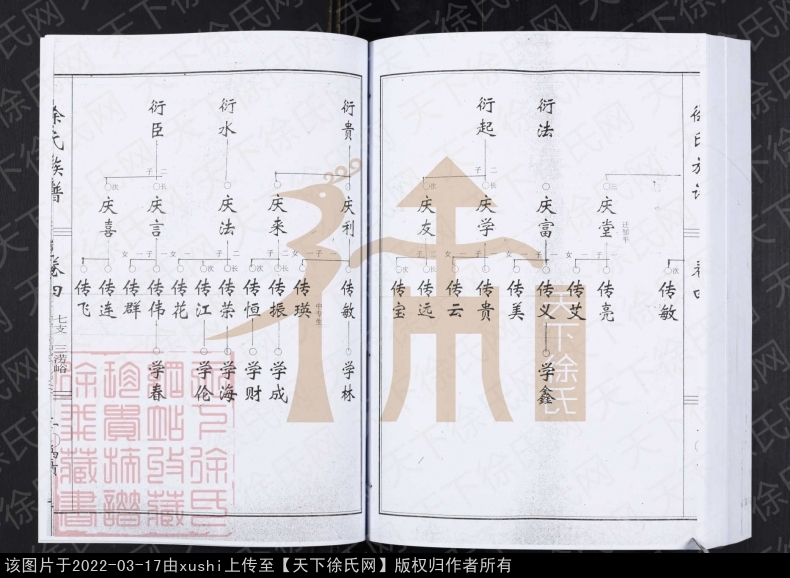 徐氏族谱
卷四
七支
三涝峪
衍法
衍起
衍贵
衍水
衍臣
二子
二子
二子
长
次
长
次
长
次
庆堂
迁邹平
庆富
庆学
庆友
庆利
庆来
庆法
庆言
庆喜
传敏
传亮
传艾
传义
传美
传贵
传云
传远
传宝
传敏
传瑛
中专生
传振
传恒
传荣
传江
传花
传伟
传群
传连
传飞
学鑫
学林
学成
学财
学海
学伦
学春
天下徐氏
天下徐氏网
该图片于2022-03-17由xushi上传至【天下徐氏网】版权归作者所有